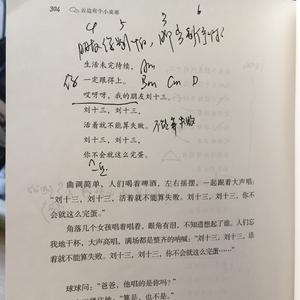 304 云边有个小卖部
4 5 3 6
生活未完待续，
Am
一定跟得上。
Em Cm D
哎呀呀，我的朋友刘十三，
刘十三，刘十三，
活着就不能算失败。
刘十三，刘十三，
你不会就这么完蛋。
曲调简单，人们喝着啤酒，左右摇摆，一起跟着大声唱：
“刘十三，刘十三，活着就不能算失败。刘十三，刘十三，你不
会就这么完蛋。”
角落几个女孩唱着唱着，眼角有泪，不知道想起了谁。人们忘
我地干杯，大声高唱，满场都是整齐的呐喊：“刘十三，刘十三，活
着就不能算失败。刘十三，刘十三，你不会就这么完蛋……”
球球问：“爸爸，他唱的是你吗？”